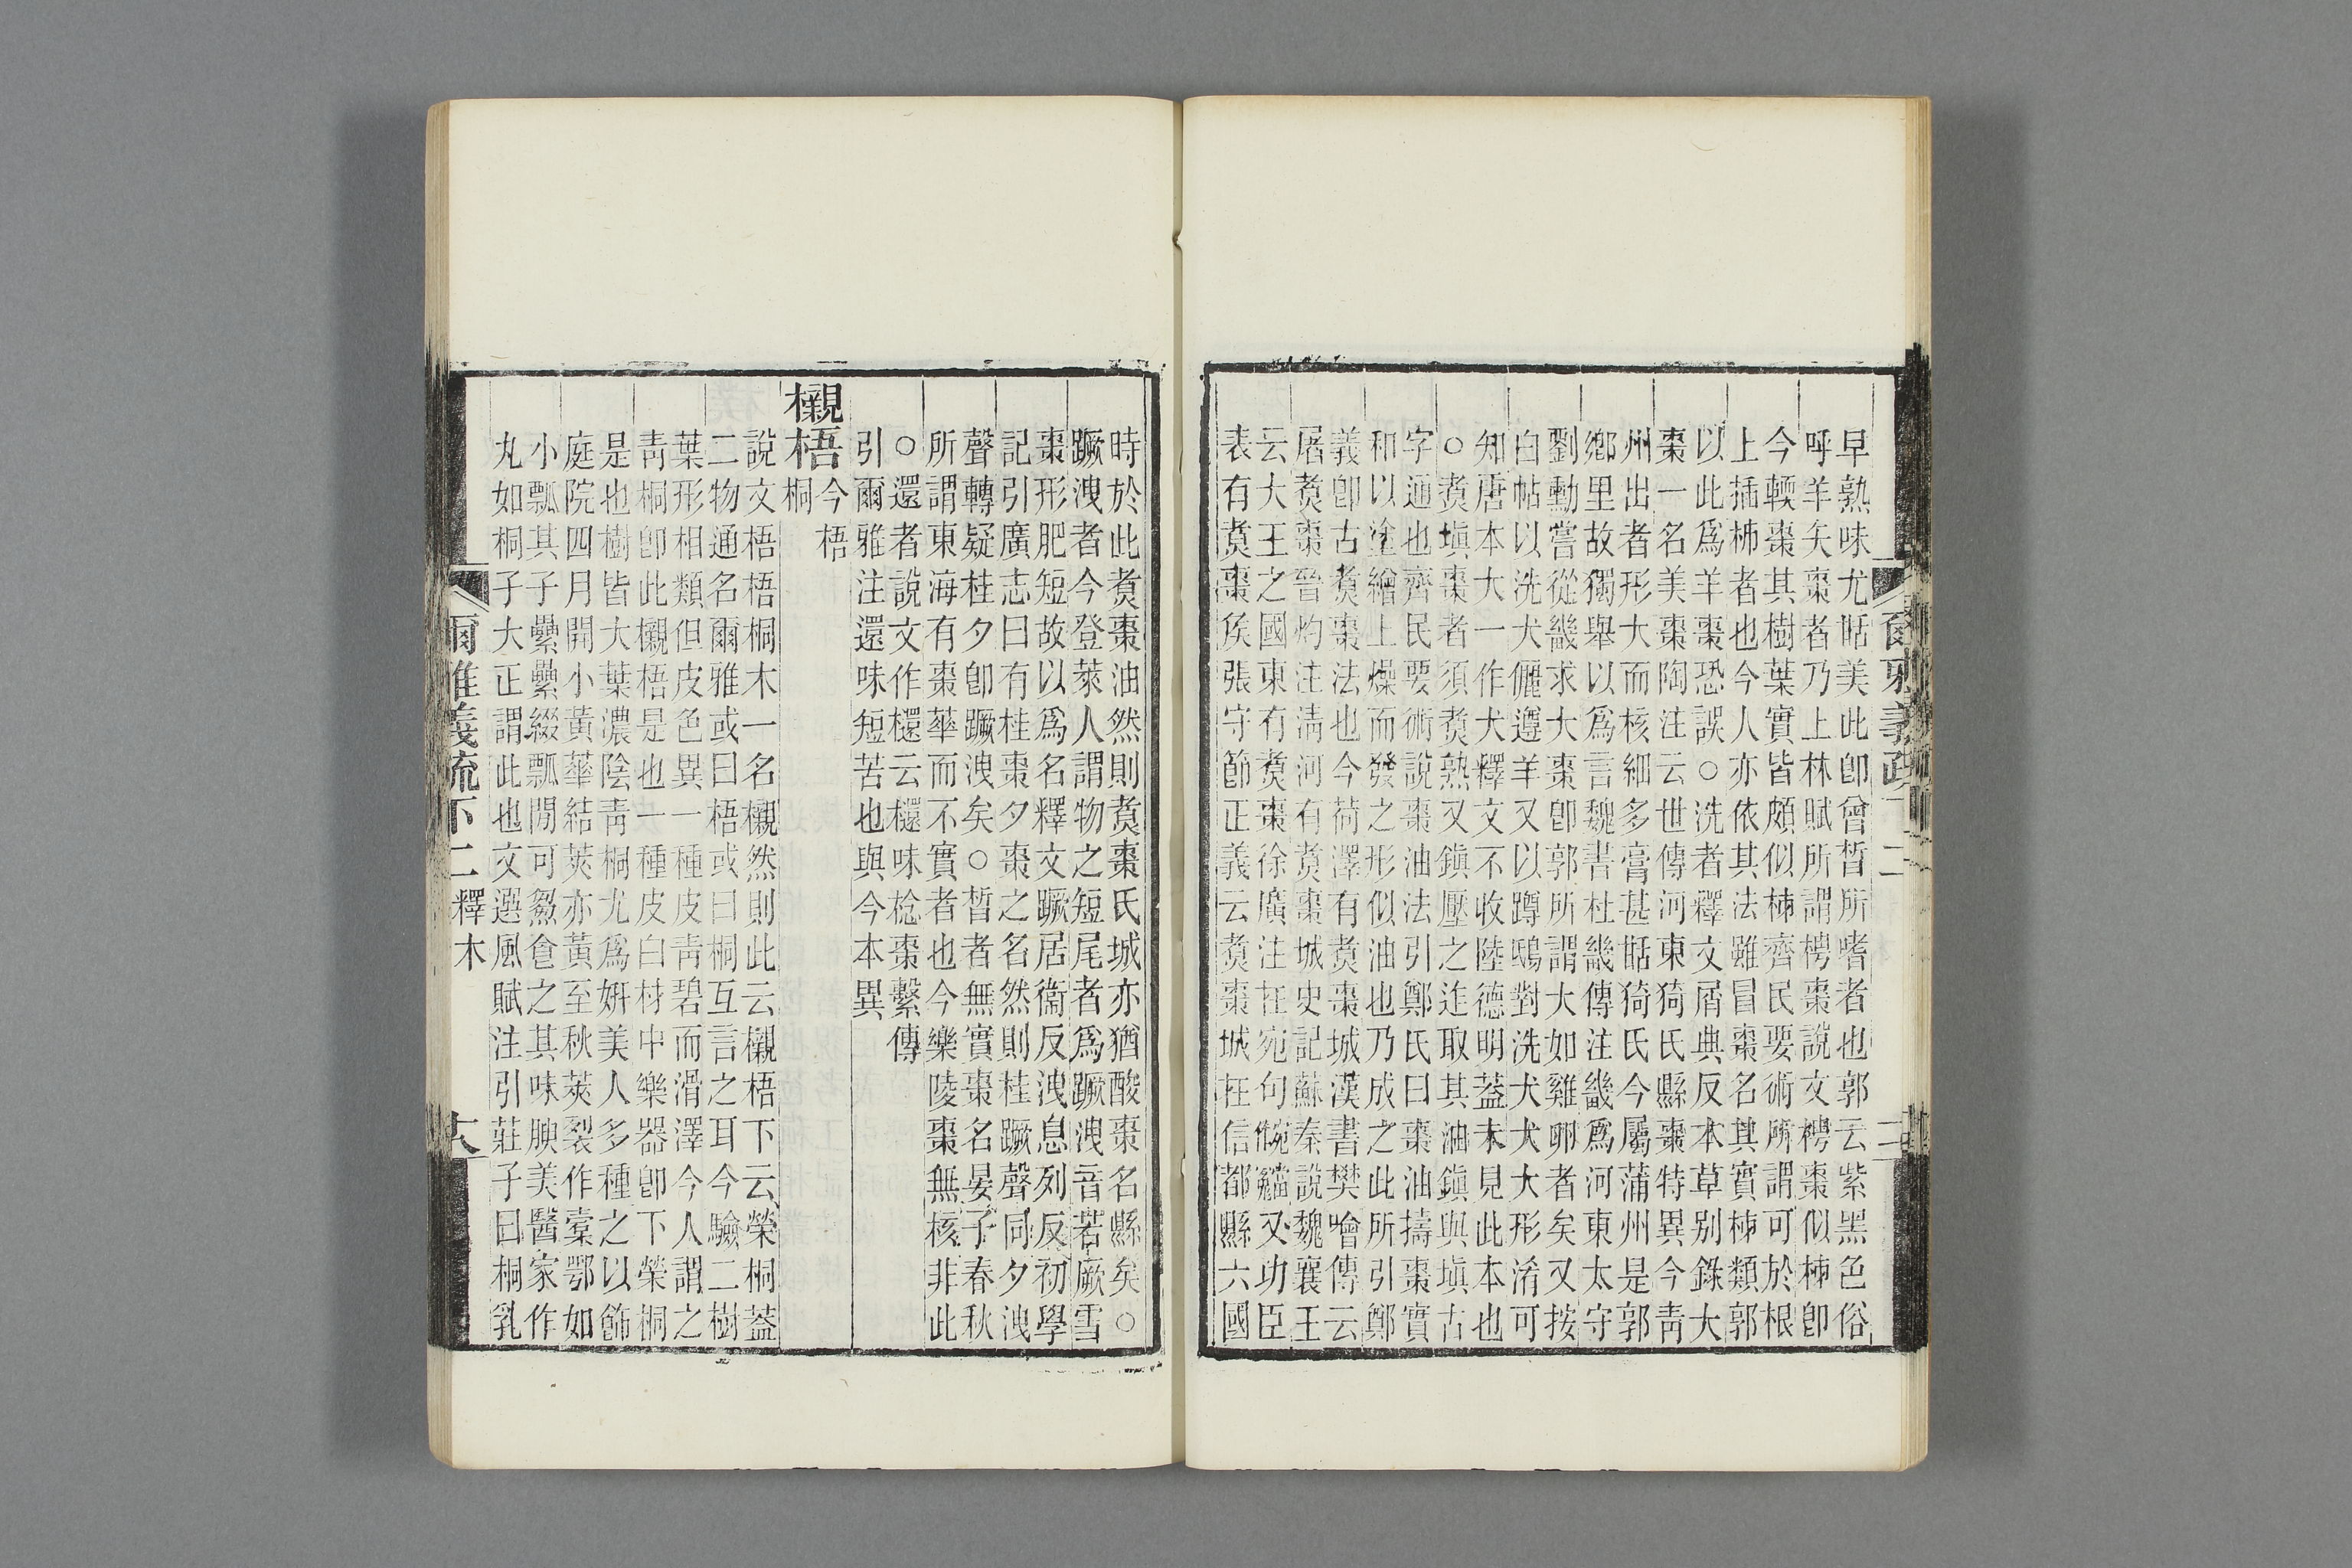 早熟味尤䑛美此卽曾晳所嗜者也郭云紫黑色俗
呼羊矢棗者乃上林賦所謂梬棗說文梬棗似柹卽
今輭棗其樹葉實皆頗似柹齊民要術所謂可於根
上插柹者也今人亦依其法雖冒棗名其實柹類郭
以此爲羊棗恐誤○洗者釋文屑典反本草别錄大
棗一名美棗陶注云世傳河東猗氏縣棗特異今靑
州出者形大而核細多膏甚䑛猗氏今屬蒲州是郭
鄉里故獨舉以爲言魏書杜畿傳注畿爲河東太守
劉勳嘗從畿求大棗卽郭所謂大如雞卵者矣又按
白帖以洗犬儷遵羊又以蹲鴟對洗犬犬大形淆可
知唐本大一作犬釋文不收陸德明蓋未見此本也
○煑塡棗者須煑熟又鎭壓之迮取其油鎭與塡古
字通也齊民要術說棗油法引鄭氏曰棗油擣棗實
和以塗繒上燥而發之形似油也乃成之此所引鄭
義卽古煑棗法也今荷澤有煑棗城漢書樊噲傳云
屠煑棗晉灼注淸河有煑棗城史記蘇秦說魏襄王
云大王之國東有煑棗徐廣注在宛句惋䌓又功臣
表有煑棗矦張守節正義云煑棗城在信都縣六國
爾雅義疏下二
時於此煑棗油然則煑棗氏城亦猶酸棗名縣矣○
蹶洩者今登萊人謂物之短尾者爲蹶洩音若厥雪
棗形肥短故以爲名釋文蹶居衞反洩息列反初學
記引廣志曰有桂棗夕棗之名然則桂蹶聲同夕洩
聲轉疑桂夕卽蹶洩矣○晳者無實棗名晏子春秋
所謂東海有棗華而不實者也今樂陵棗無核非此
○還者說文作櫏云櫏味棯棗繫傳
引爾雅注還味短苦也與今本異
櫬梧今梧桐
說文梧梧桐木一名櫬然則此云櫬梧下云榮桐蓋
二物通名爾雅或曰梧或曰桐互言之耳今驗二樹
葉形相類但皮色異一種皮靑碧而滑澤今人謂之
靑桐卽此櫬梧是也一種皮白材中樂器卽下榮桐
是也樹皆大葉濃陰靑桐尤爲妍美人多種之以飾
庭院四月開小黃華結莢亦黃至秋莢裂作櫜鄂如
小瓢其子纍纍綴瓢閒可芻飡之其味腴美醫家作
丸如桐子大正謂此也文選風賦注引莊子曰桐乳
爾雅義疏下二釋木　六